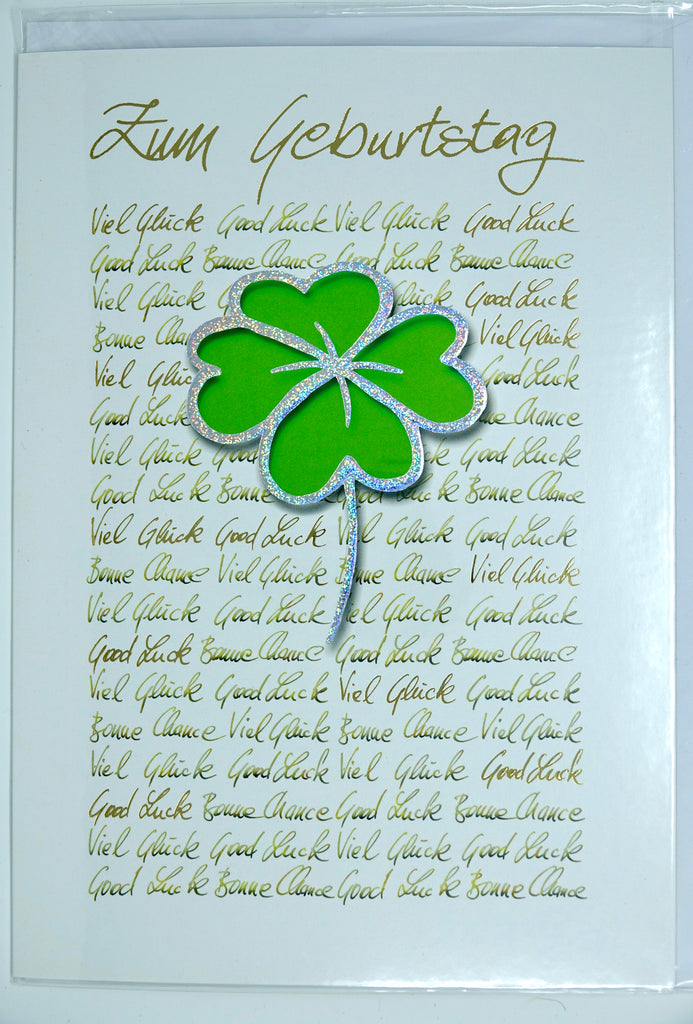 Zum Geburtstag
Viel Glück Good Luck Viel Glück Good Luck
Good Luck Bonne Chance Good Luck Bonne Chance
Viel Glück Glück Good Luck
Bonne Viel Glück
Viel Good Luck
Good Luck Chance
Viel Glück Good Luck
Good Luck Bonne Luck Bonne Chance
Viel Glück Good Luck Viel Glück Good Luck
Bonne Chance Viel Glück Bonne Chance Viel Glück
Viel Glück Good Luck Viel Glück Good Luck
Good Luck Bonne Chance Good Luck Bonne Chance
Viel Glück Good Luck Viel Glück Good Luck
Bonne Chance Viel Glück Bonne Chance Viel Glück
Viel Glück Good Luck Viel Glück Good Luck
Good Luck Bonne Chance Good Luck Bonne Chance
Viel Glück Good Luck Viel Glück Good Luck
Good Luck Bonne Chance Good Luck Bonne Chance